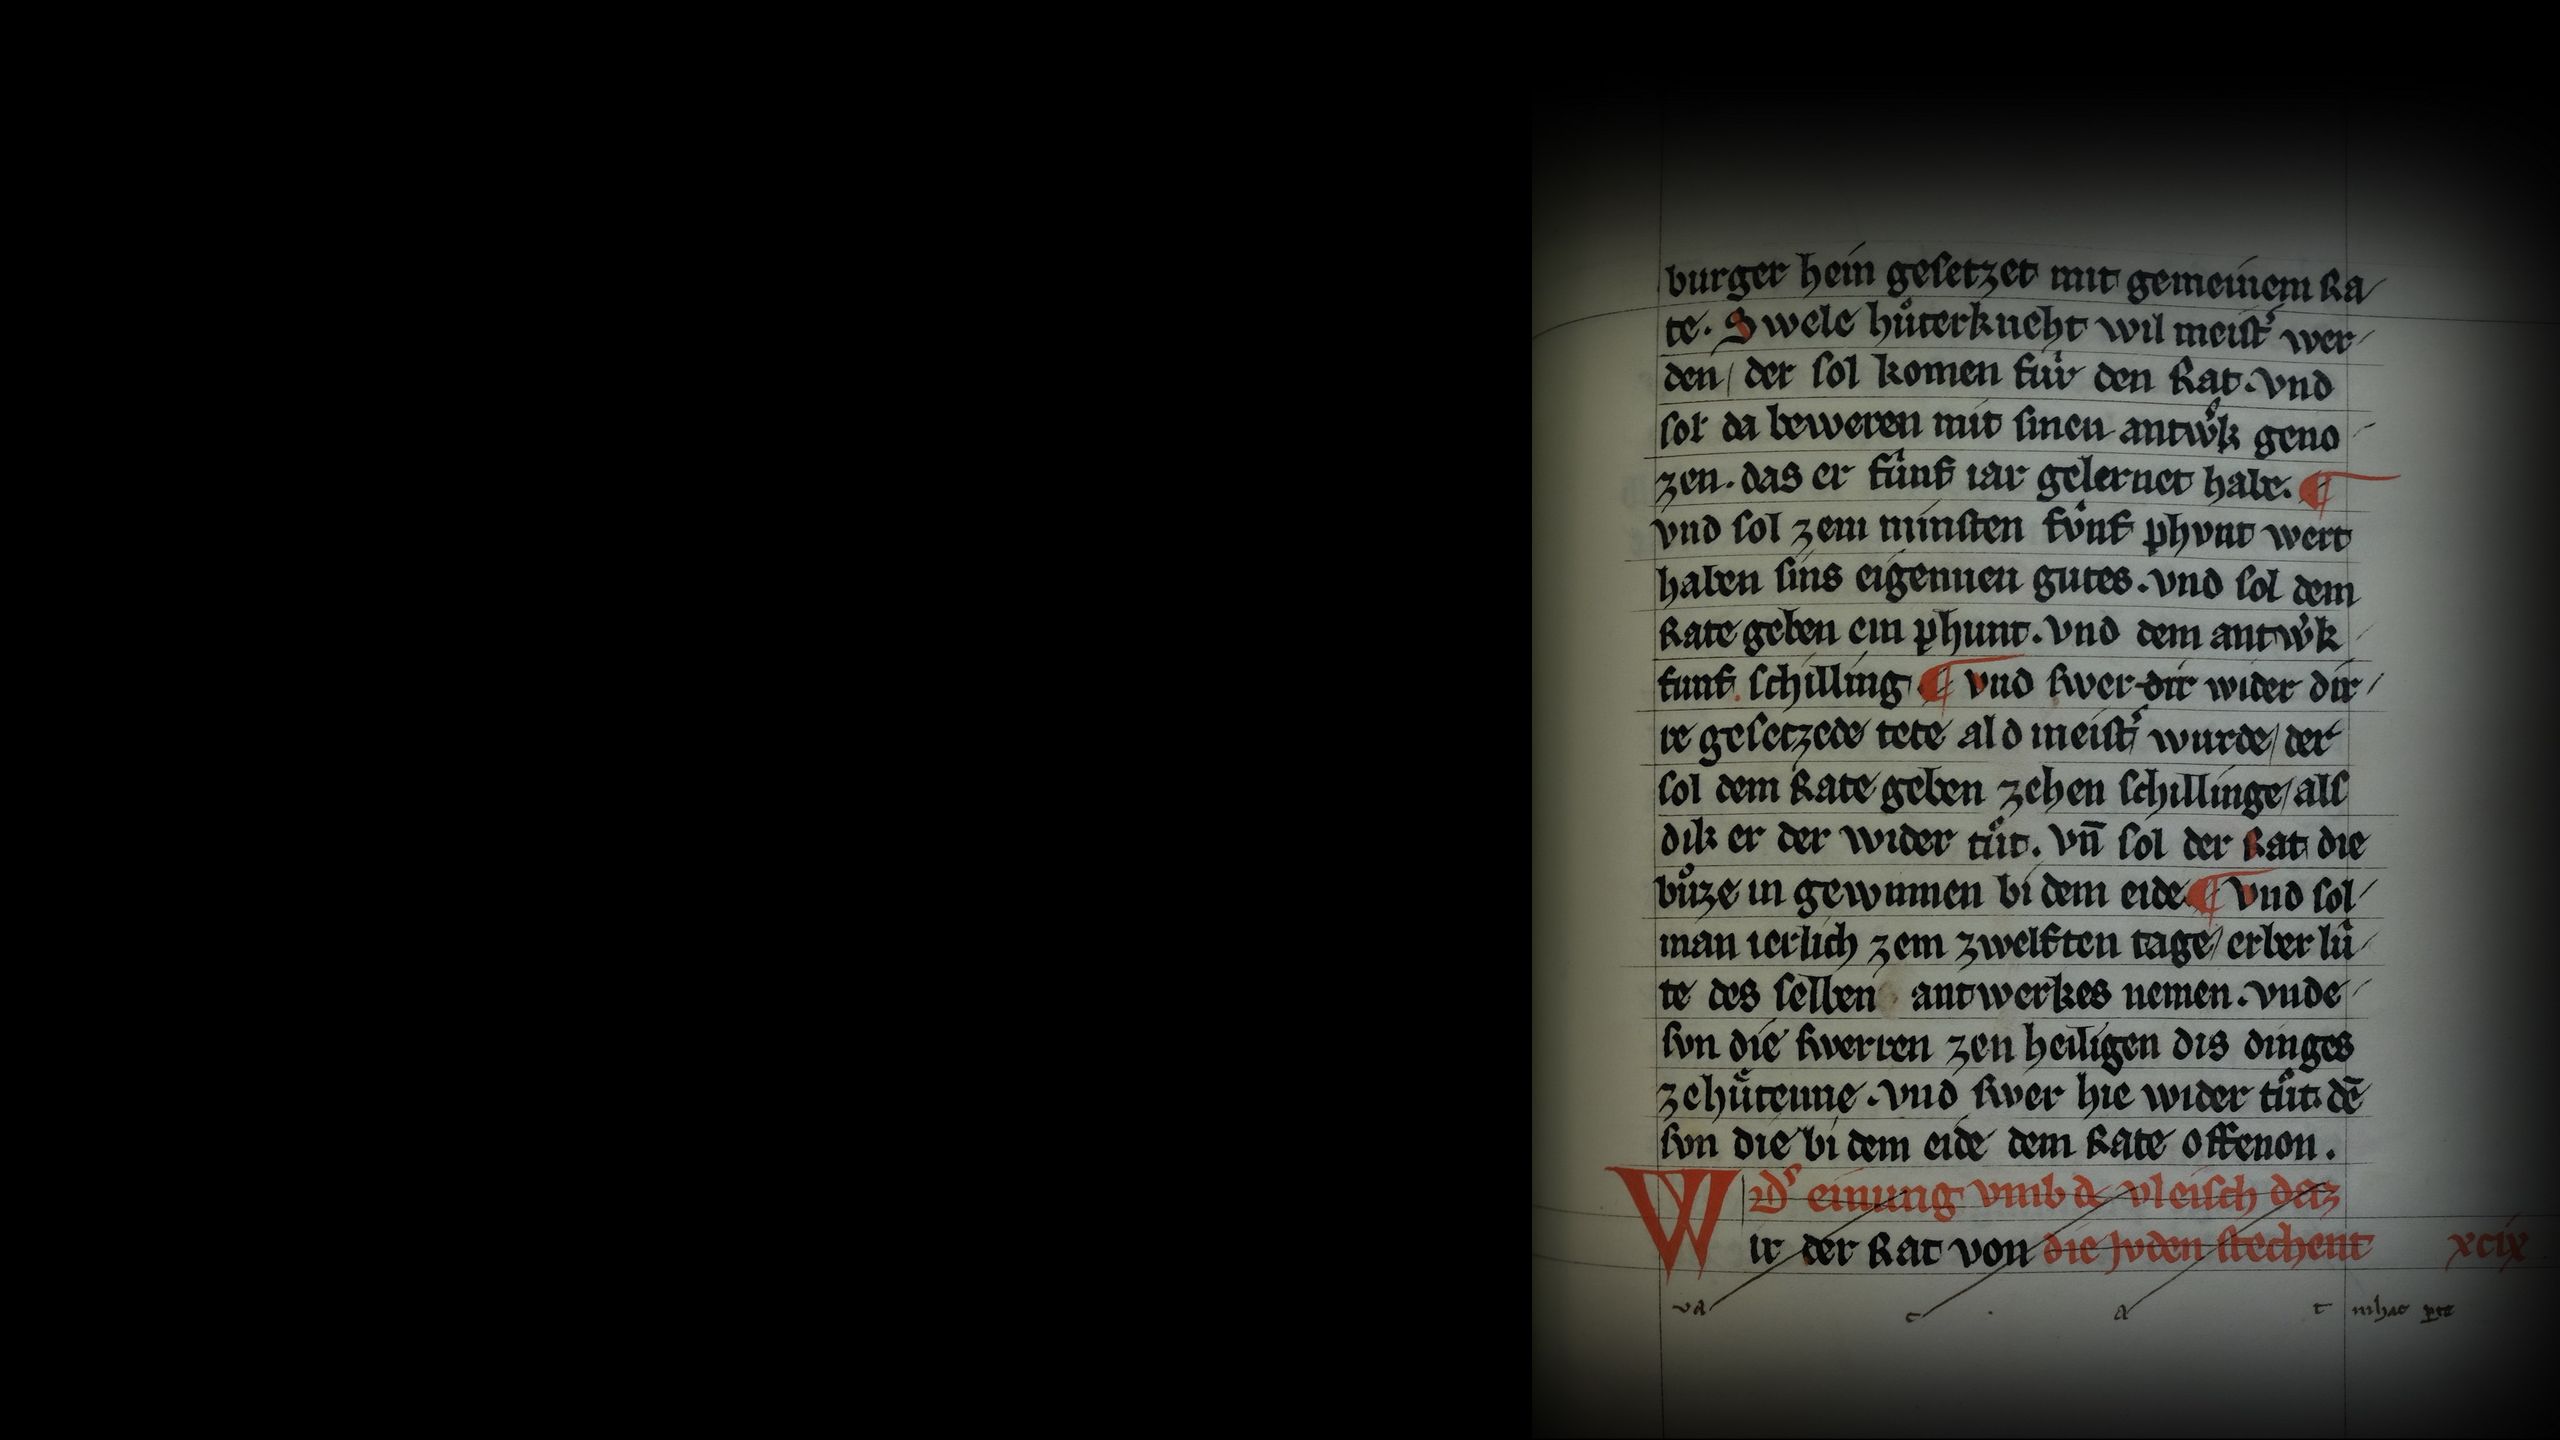 burger hein gesetzet mit gemeinem Ra/
te. Swele hu̍terkneht wil meistʼ wer/
den/ der sol komen fu̍r den Rat. vnd
sol da beweren mit sinen antwʼk geno/
zen. das er fu̍nf iar gelernet habe. ¶
vnd sol zem minsten fv̍nf phvnt wert
haben sins eigennen gutes. vnd sol dem
Rate geben ein phunt. vnd dem antwʼk/
funf schilling ¶ vnd swer dir wider dir/
re gesetzede tete ald meistʼ wurde/ der
sol dem Rate geben zehen schillinge/ als
dik er der wider tůt. vn̄ sol der Rat die
bůze in gewinnen bi dem eide ¶ Vnd sol/
man ierlich zem zwelften tage/ erber lu̍/
te des selben antwerkes nemen. vnde/
svn die swerren zen heiligen dis dinges
ze hu̍tenne. vnd swer hie wider tůt. dē
svn die bi dem eide dem Rate offenon.
Dʼ einung vmb dc vleisch daz
Wir der Rat von die Jvden stechent xcix
va c . a t